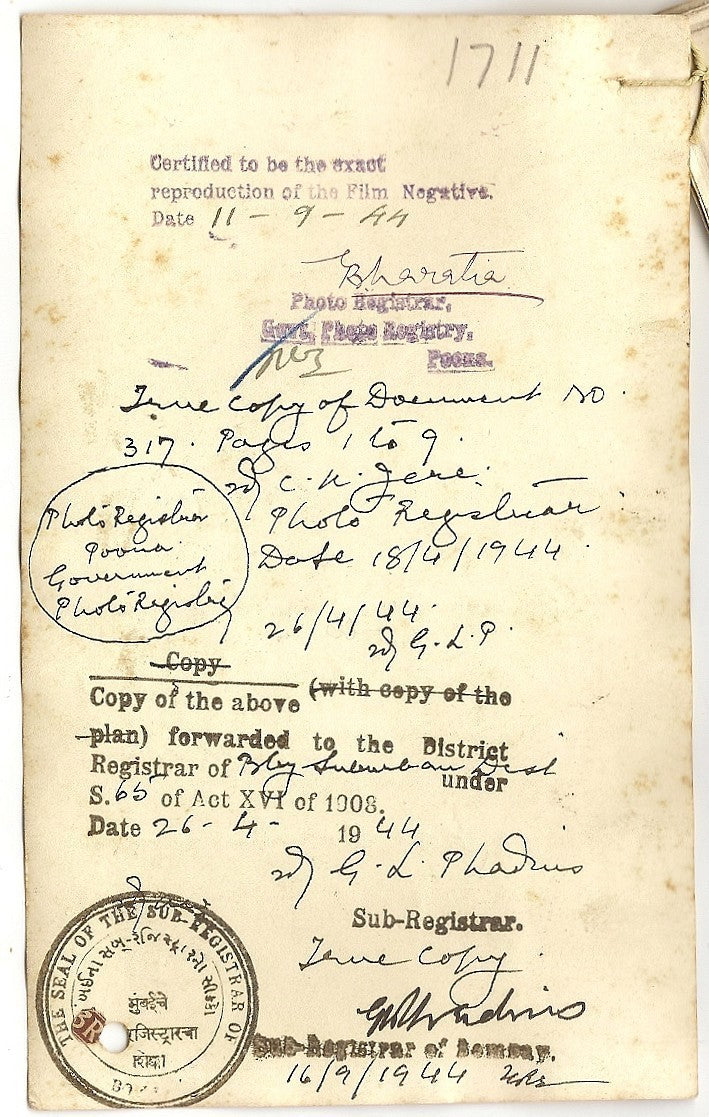 1711
Certified to be the exact
reproduction of the Film Negative.
Date 11 - 9 - 44
Bharatia
Photo Registrar,
Govt. Photo Registry,
Poona.
True Copy of Document No.
317. Pages 1 to 9.
sd/ C. N. Jere.
Photo Registrar
Date 18/4/1944.
Photo Registrar
Poona.
Government
Photo Registry
26/4/44.
sd/ G. L. P.
Copy
Copy of the above (with copy of the
plan) forwarded to the District
Registrar of Bby Suburban Dist under
S. 65 of Act XVI of 1908.
Date 26 - 4 - 1944
sd/ G. L. Phadnis
Sub-Registrar.
True Copy.
GLPhadnis
Sub-Registrar of Bombay.
16/9/1944
THE SEAL OF THE SUB-REGISTRAR OF
સબ-રજિસ્ટ્રારનો સીક્કો
मुंबईचे
रजिस्ट्रारचा
शिक्का